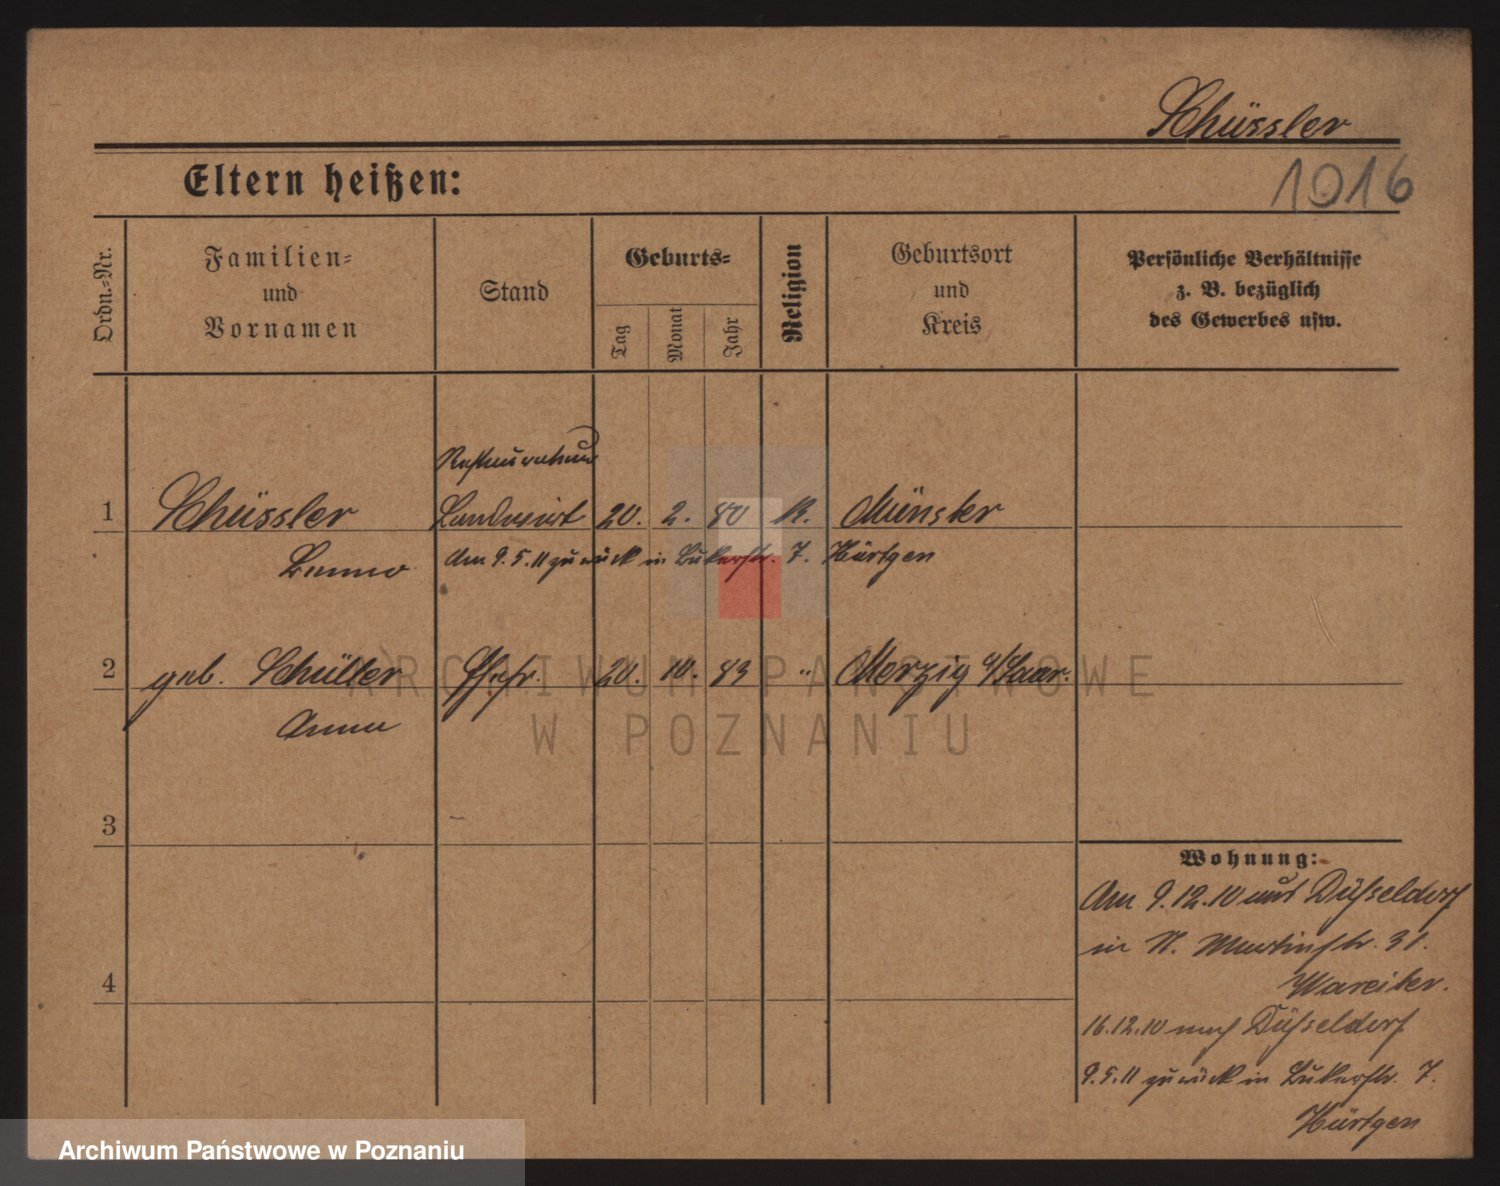 Schüssler
1916
Eltern heißen:
Ordn.-Nr.
Familien-
und
Vornamen
Stand
Geburts-
Tag
Monat
Jahr
Religion
Geburtsort
und
Kreis
Persönliche Verhältnisse
z. B. bezüglich
des Gewerbes usw.
1 Schüssler Landwirt 20. 2. 80 K. Münster
Benno Am 9.5.11 zurück in Bukerstr. 7. Hürtgen
2 geb. Schütter Ehefr. 20. 10. 83 " Merzig a/Saar.
Anna
3
4
Wohnung:
Am 9.12.10 aus Düsseldorf
in St. Martinstr. 31.
16.12.10 nach Düsseldorf
9.5.11 zurück in Bukerstr. 7.
Hürtgen
ARCHIWUM PAŃSTWOWE
W POZNANIU
Archiwum Państwowe w Poznaniu